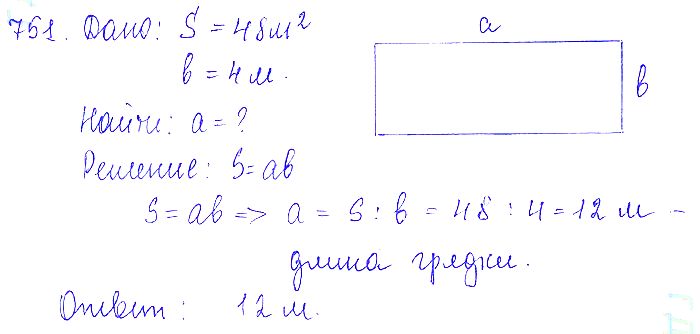 751. Дано: S = 48м²
a
в = 4 м.
в
Найти: a = ?
Решение: S = aв
S = aв => a = S : в = 48 : 4 = 12 м -
длина грядки.
Ответ: 12 м.